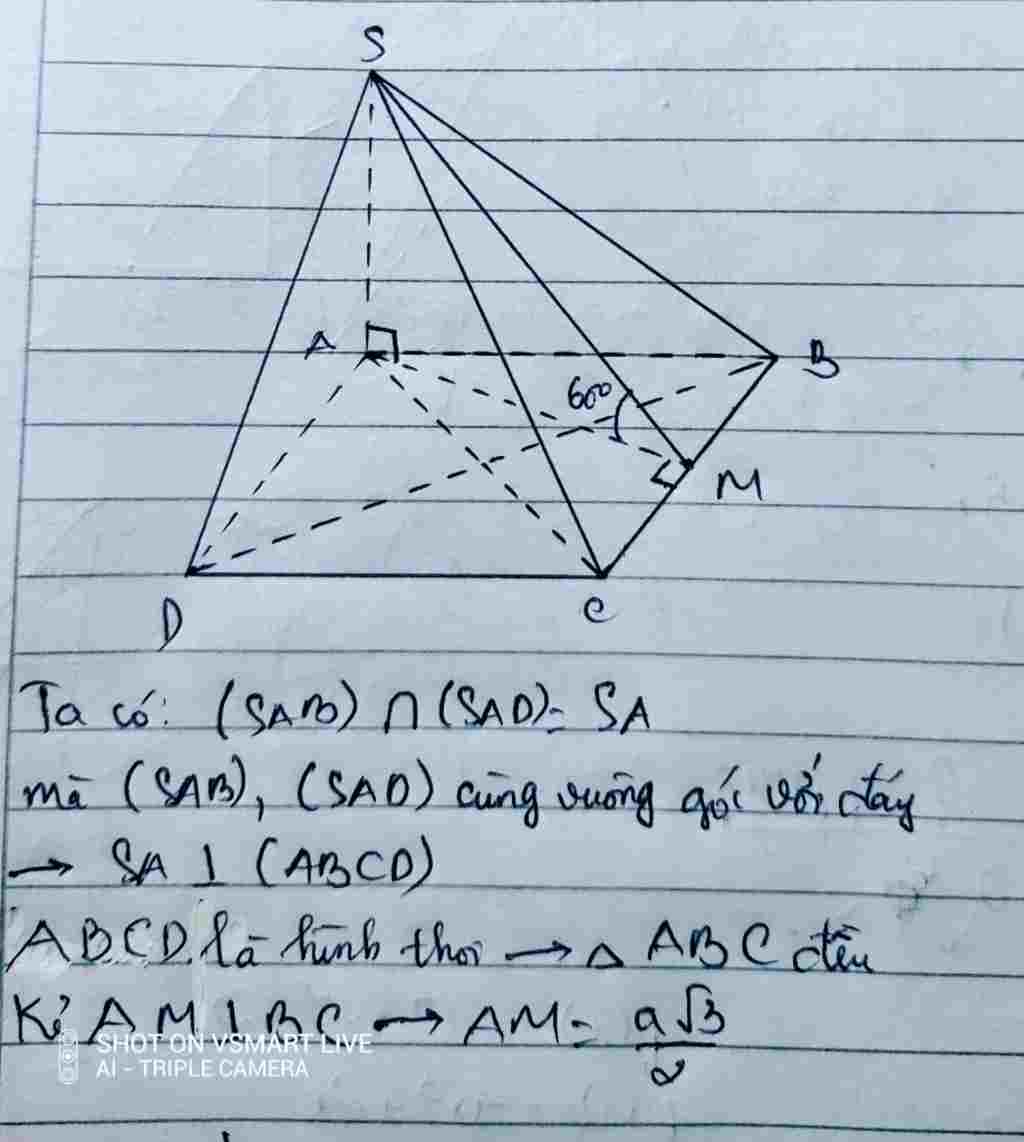 S
A
B
60°
M
D
C
Ta có: (SAB) ∩ (SAD) = SA
mà (SAB), (SAD) cùng vuông góc với đáy
→ SA ⊥ (ABCD)
ABCD là hình thoi → △ ABC đều
Kẻ AM ⊥ BC → AM = a√3/2
SHOT ON VSMART LIVE
AI - TRIPLE CAMERA